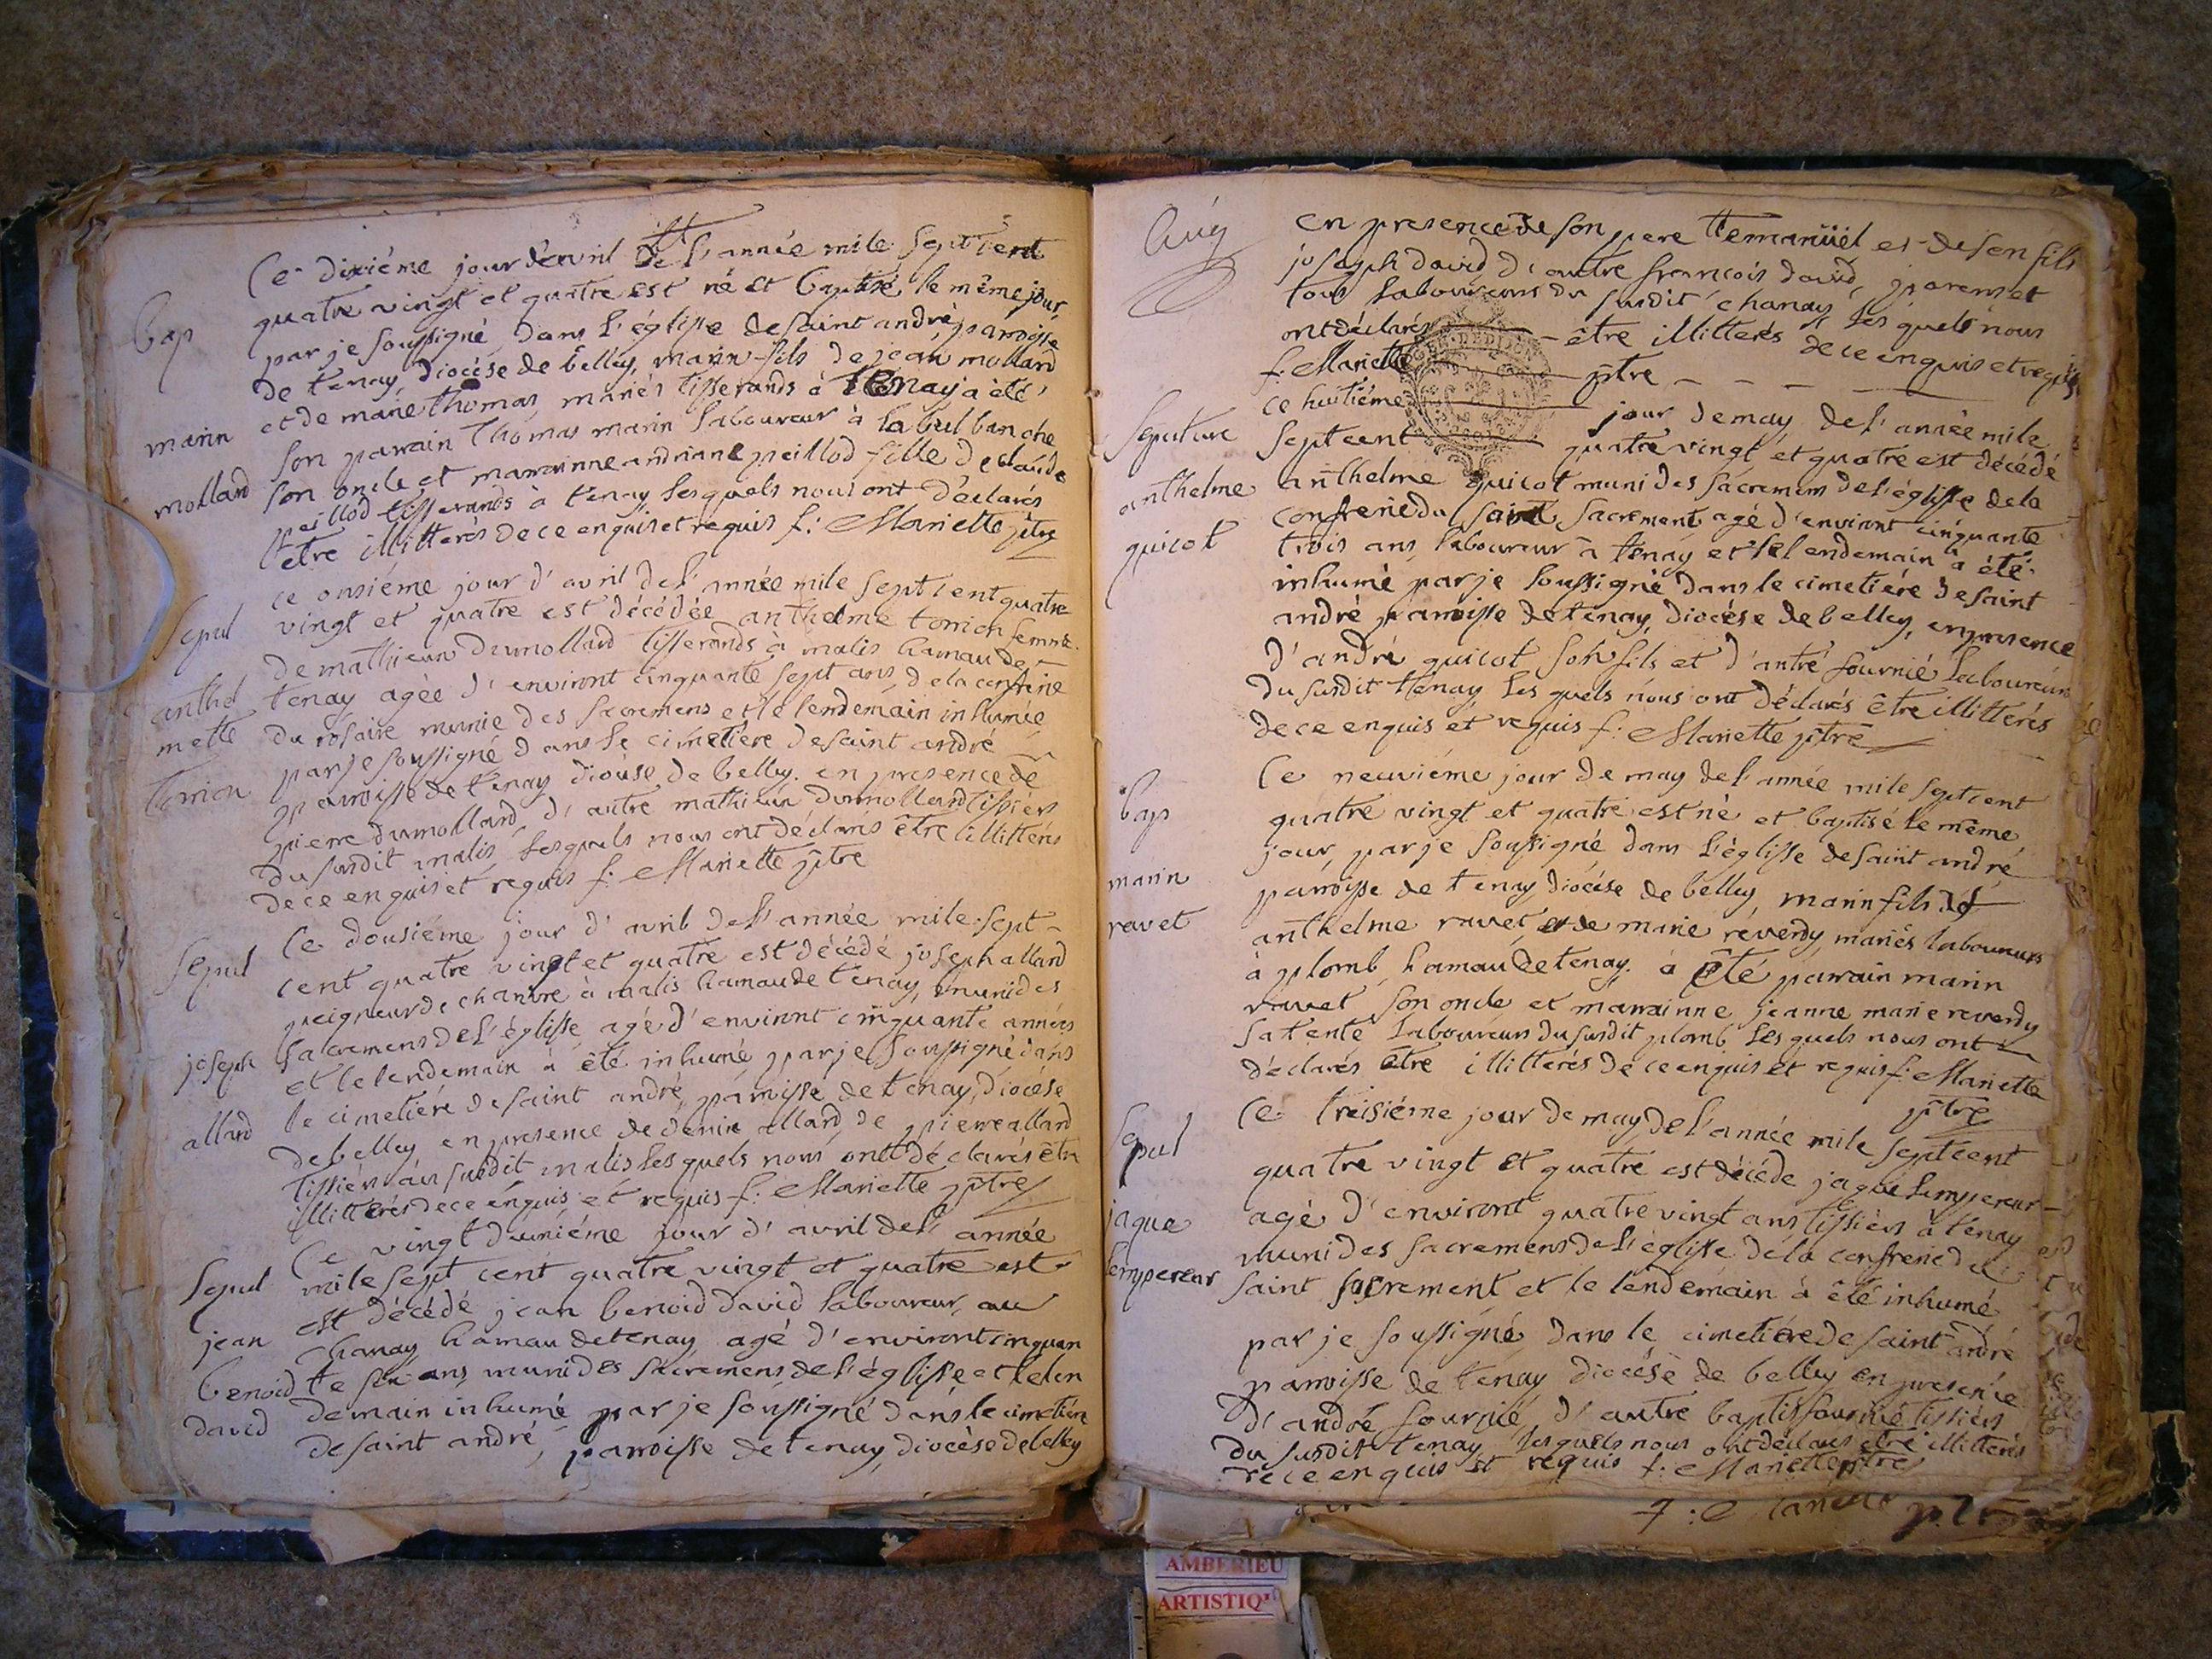 Ce dixiéme jour davril de l'année mile sept cent
bap
quatre vingt et quatre est né et baptisé le même jour
par je soussigné dans l'églisse de saint andré parroisse
de tenay diocése de belley, marin fils de jean mollard
et de marie thomas mariés tisserands à tenay a été
marin
son parrain thomas marin laboureur à la bulbanche
mollard
son oncle et marrainne andriane peillod fille de claude
peillod tisserands à tenay lesquels nous ont déclarés
être illitterés de ce enquis et requis f: Mariette ptre
ce onsiéme jour d'avril de l'année mile sept cent quatre
Sepul
vingt et quatre est décédée anthelme tonion femme
de mathieux dumollard tisserands à malis hamau de
anthel
tenay agée d'environt cinquante sept ans de la confrerie
mette
du rosaire munie des sacremens et le lendemain inhumée
par je soussigné dans le cimetiére de saint andré
tonion
parroisse de tenay diocése de belley. en presence de
pierre dumollard, d'autre mathieux dumollard tissiers
du susdit malis lesquels nous ont déclarés être illitterés
de ce enquis et requis f: Mariette ptre
Ce dousiéme jour d'avril de l'année mile sept
Sepul
cent quatre vingt et quatre est décédé joseph allard
peigneur de chanvre à malis hamau de tenay, muni des
sacremens de l'églisse agé d'environt cinquante années
joseph
et le lendemain à été inhumé par je soussigné dans
allard
le cimetiére de saint andré parroisse de tenay, diocése
de belley en presence de denis allard de pierre allard
tissiers au susdit malis lesquels nous ont déclarés être
illitterés de ce enquis et requis f: Mariette ptre
Ce vingt d'uniéme jour d'avril de l'année
Sepul
mile sept cent quatre vingt et quatre est
est décédé jean benoid david laboureur au
jean
chanay hamau de tenay agé d'environt cinquan
benoid
te six ans muni des sacremens de l'églisse et le len
david
demain inhumé par je soussigné dans le cimetiére
de saint andré, parroisse de tenay, diocése de belley
en presence de son pere emanüel et de son fils
joseph david d'autre francois david, parens et
tous laboureurs du susdit chanay les quels nous
ont déclarés être illitterés de ce enquis et requis
f: Mariette ptre
ce huitiéme jour de may de l'année mile
Seputure
sept cent quatre vingt et quatre est décédé
anthelme
anthelme guicot muni des sacremens de l'églisse de la
confrerie du saint sacrement agé d'environt cinquante
guicot
trois ans laboureur à tenay et le lendemain à été
inhumé par je soussigné dans le cimetiére de saint
andré parroisse de tenay, diocése de belley, en presence
d'andré guicot son fils et d'autre fournié laboureurs
du susdit tenay les quels nous ont déclarés être illitterés
de ce enquis et requis f: Mariette ptre
Ce neuviéme jour de may de l'année mile sept cent
bap
quatre vingt et quatre est né et baptisé le même
jour, par je soussigné dans l'églisse de saint andré
marin
parroisse de tenay diocése de belley, marin fils de
ravet
anthelme ravet et de marie reverdy mariés laboureurs
à plomb hamau de tenay. à été parrain marin
ravet son oncle et marrainne jeanne marie reverdy
sa tente laboureurs du susdit plomb les quels nous ont
déclarés être illitterés de ce enquis et requis f: Mariette
ptre
Ce treisiéme jour de may de l'année mile sept cent
Sepul
quatre vingt et quatre est décédé jaque lempereur
jaque
agé d'environt quatre vingt ans tissiers à tenay
lempereur
muni des sacremens de l'églisse de la confrerie du
saint sacrement et le lendemain à été inhumé
par je soussigné, dans le cimetiére de saint andré
parroisse de tenay diocése de belley en presence
d'andré fournié, d'autre baptis fournié tissiers
du susdit tenay les quels nous ont déclarés être illitterés
de ce enquis et requis f: Mariette ptre
AMBERIEU
ARTISTIQ